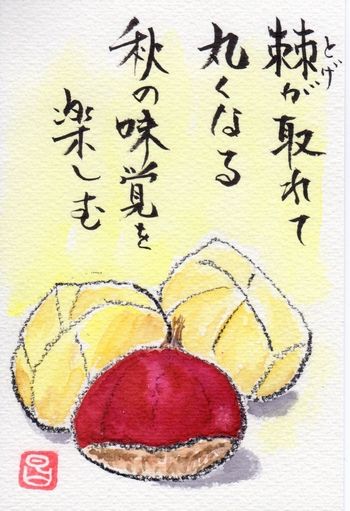 棘が取れて
とげ
丸くなる
秋の味覚を
楽しむ